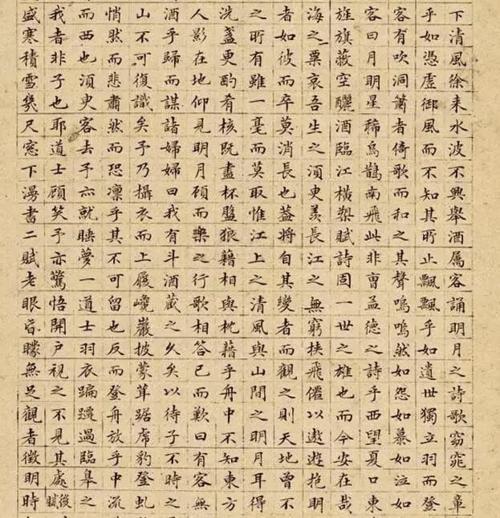 下清風徐来水波不興舉酒属客誦明月之詩歌窈窕之章
乎如憑虚御風而不知其所止飄飄乎如遺世獨立羽而登
客有吹洞簫者倚歌而和之其聲嗚嗚然如怨如慕如泣如
客曰月明星稀烏鵲南飛此非曹孟德之詩乎西望夏口東
旌旗蔽空釃酒臨江横槊賦詩固一世之雄也而今安在哉
海之一粟哀吾生之須臾羡長江之無窮挾飛僊以遨遊抱明
者如彼而卒莫消長也盖將自其變者而觀之則天地曾不
之所有雖一毫而莫取惟江上之清風與山間之明月耳得
洗盞更酌肴核既盡杯盤狼籍相與枕藉乎舟中不知東方
人影在地仰見明月顧而樂之行歌相答已而歎曰有客無
酒乎歸而謀諸婦婦曰我有斗酒藏之久矣以待子不時之
山不可復識矣予乃攝衣而上履巉巖披蒙茸踞虎豹登虬
悄然而悲肅然而恐凛乎其不可留也反而登舟放乎中流
而西也須臾客去予亦就睡夢一道士羽衣蹁躚過臨皋之
我者非子也耶道士顧笑予亦驚悟開户視之不見其處後賦
盛寒積雪幾尺窓下漫書二賦老眼昏曚無足觀者徵明時